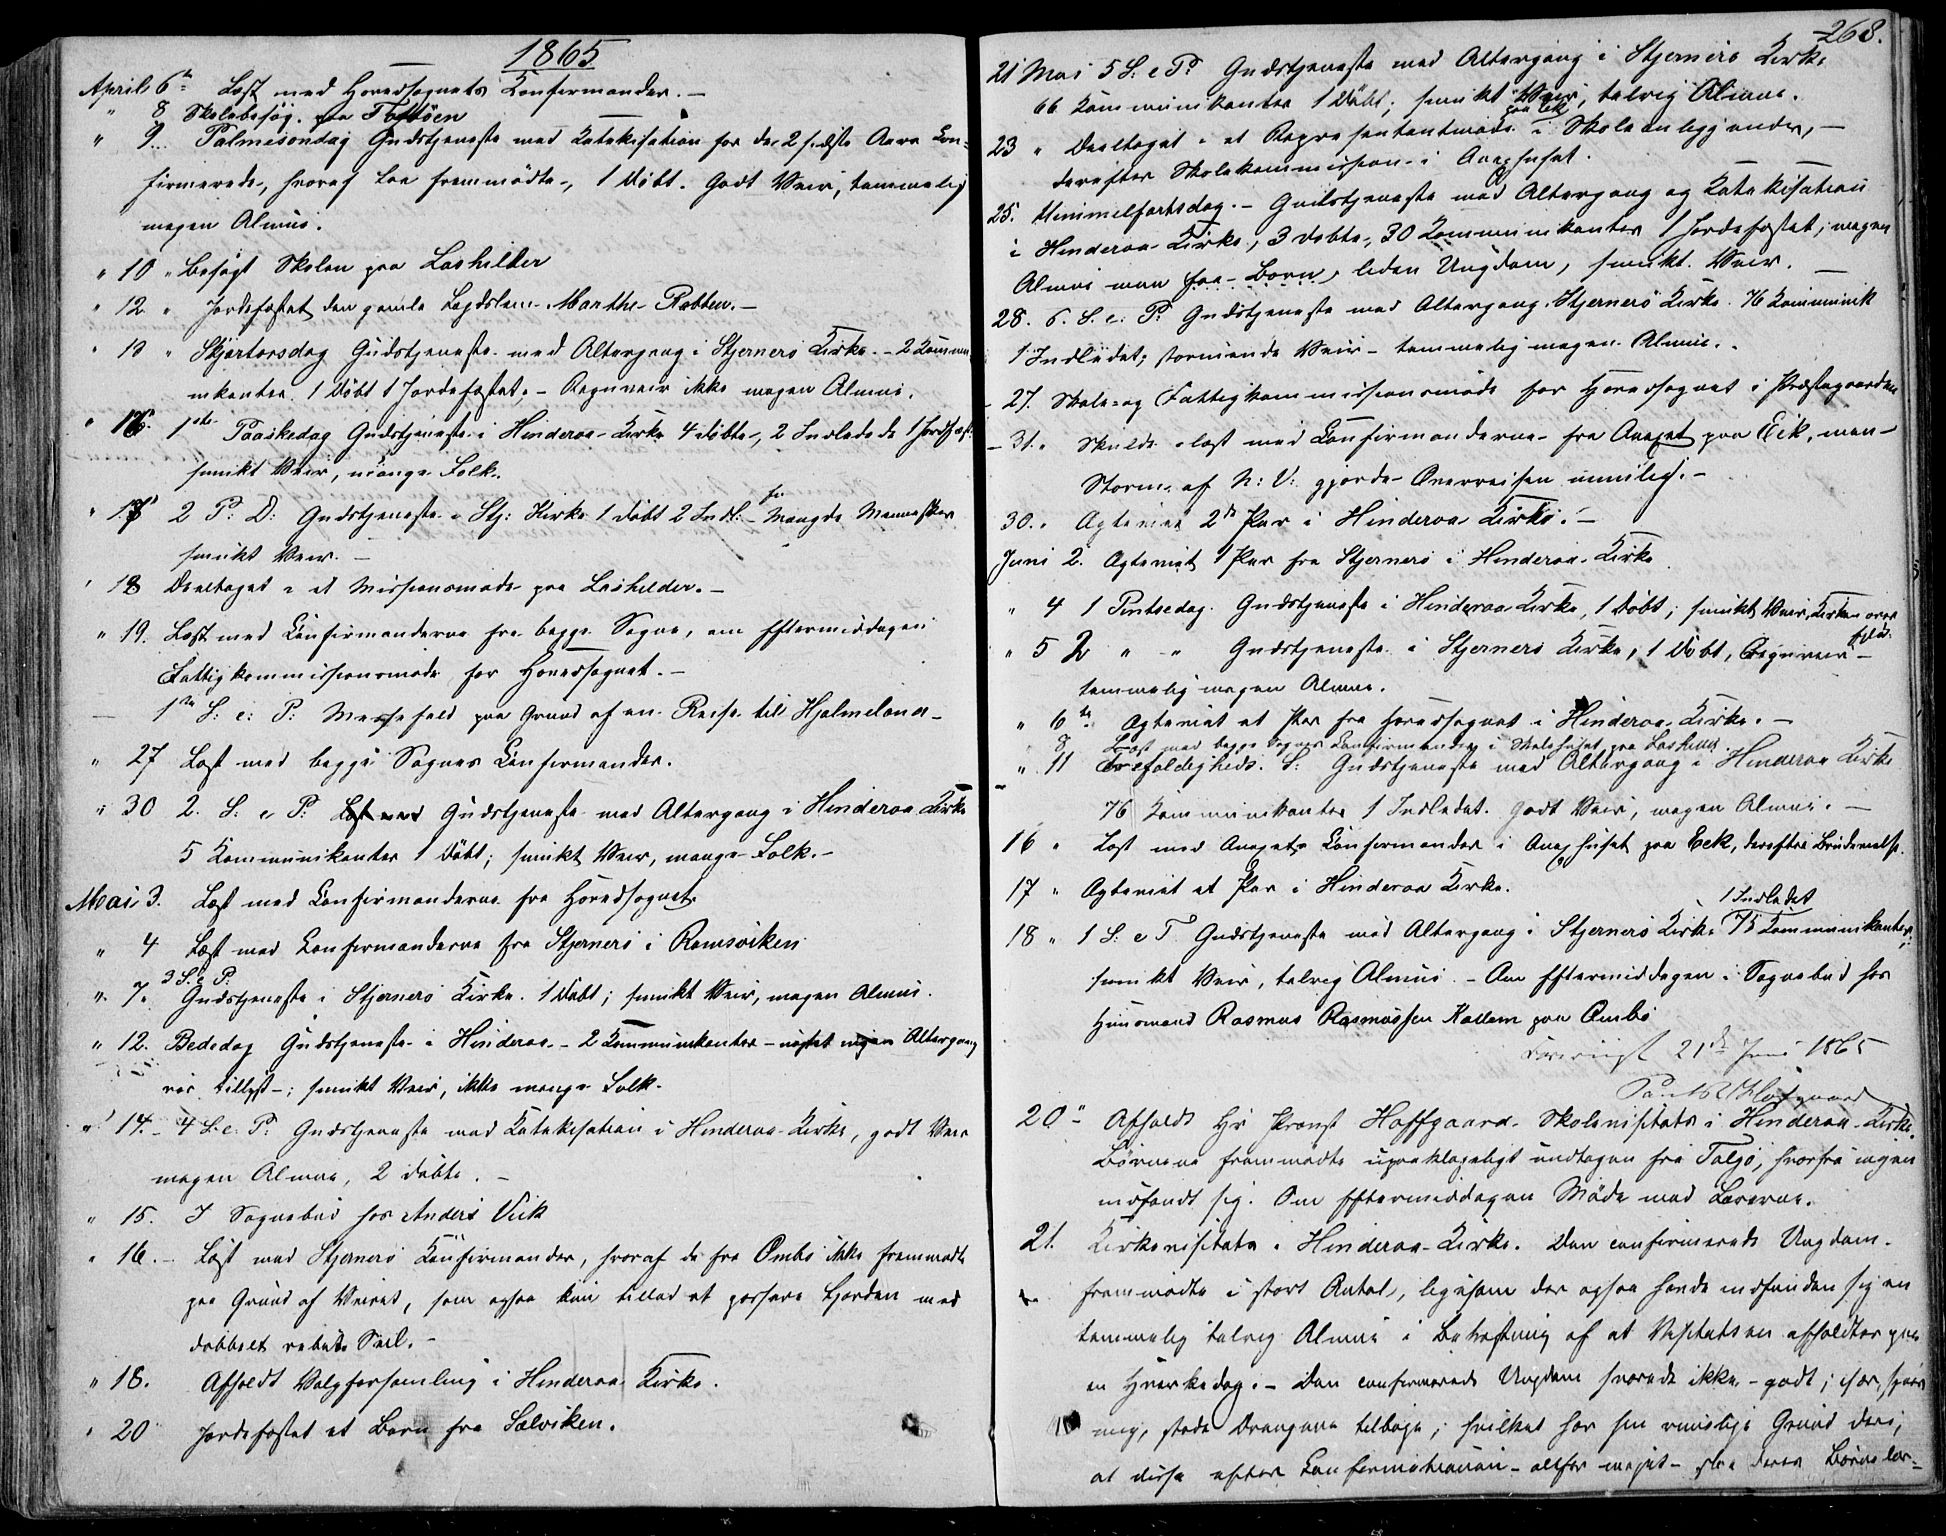 1865
April 6te Læst med Hovedsognets Konfirmander. –
" 8 Skolebesøg paa Foldöen
" 9. Palmesøndag Gudstjeneste med Katekisation for de 2 sidste Aars Con-
firmerede, hvoraf faa fremmødte, 1 Døbt. Godt Veir, temmelig
megen Almue.
" 10 " Besøgt Skolen paa Lashilder
" 12 " Jordfæstet den gamle Lægdslem Marthe Robten. –
" 13 " Skjærtorsdag Gudstjeneste med Altergang i Stjernerö Kirke. – 2 Kommu-
nikanter 1 Døbt 1 Jordfæstet. – Regnveir ikke megen Almue.
" 16. 1ste Paaskedag Gudstjeneste i Hinderaa Kirke 4 døbte, 2 Indledede 1 Jordfæst:
smukt Veir, mange Folk.
" 17 2 P: D: Gudstjeneste i Stj: Kirke 1 døbt 2 Indl: – Mængde Mennesker
smukt Veir. –
" 18 Deeltaget i et Missionsmøde paa Lashilder. –
" 19. Læst med Konfirmanderne fra begge Sogne, om Eftermiddagen
Fattigkommissionsmøde for Hovedsognet. –
– 1ste S: e: P: Messefald paa Grund af en Reise til Hjelmeland –
" 27 Læst med begge Sognes Konfirmander.
" 30 2. S: e P: Gudstjeneste med Altergang i Hinderaa Kirke
5 Kommunikanter 1 Døbt; smukt Veir, mange Folk. –
Mai 3. Læst med Konfirmanderne fra Hovedsognet.
" 4 Læst med Konfirmanderne fra Stjernerö i Ramsviken
3 S. e P.
" 7. Gudstjeneste i Stjernerö Kirke. 1 Døbt; smukt Veir, megen Almue.
" 12. Bededag Gudstjeneste i Hinderaa – 2 Kommunikanter – uagtet ingen Altergang
var tillyst –; smukt Veir, ikke mange Folk.
" 14. – 4 S. e. P: Gudstjeneste med Katekisation i Hinderaa Kirke, godt Veir
megen Almue, 2 døbte. –
" 15. I Sognebud hos Anders Viik
" 16. – Læst med Stjernerö Konfirmander, hvoraf de fra Ombo ikke fremmødte
paa Grund af Veiret, som ogsaa kun tillod at passere Fjorden med
dobbelt rebede Seil. –
" 18. Afholdt Valgforsamling i Hinderaa Kirke.
" 20 Jordfæstet et Barn fra Sælviken.
268.
21 Mai 5 S. e P: Gudstjeneste med Altergang i Stjernerö Kirke
66 Kommunikanter 1 Døbt; smukt Veir, talrig Almue.
paa Eik
23 " Deeltaget i et Repræsentantmøde i Skoleanliggender, –
derefter Skolekommission i Annexhuset.
25. Himmelfartsdag. – Gudstjeneste med Altergang og Katekisation
i Hinderaa Kirke, 3 døbte, 30 Kommunikanter 1 Jordfæstet; megen
Almue men faa Børn, liden Ungdom, smukt Veir. –
28. 6. S. e: P: Gudstjeneste med Altergang Stjernerö Kirke. 76 Kommunik
1 Indledet; stormende Veir – temmelig megen Almue. –
– 27. Skole- og Fattigkommissionsmøde for Hovedsognet i Præstegaarden
– 31. Skulde læst med Konfirmanderne fra Anexet paa Eik, men –
Storm af N: V: gjorde Overreisen umulig. –
30. " Ægteviet 2de Par i Hinderaa Kirke. –
Juni 2. Ægteviet 1 Par fra Stjernerö i Hinderaa Kirke
" 4 1 Pintsedag. Gudstjeneste i Hinderaa Kirke, 1 Døbt; smukt Veir, Kirken over
fyldt.
" 5 2 " " Gudstjeneste i Stjernerö Kirke, 1 Døbt, Regnveir –
temmelig megen Almue.
" 6te Ægteviet et Par fra Hovedsognet i Hinderaa Kirke. –
" 8 Læst med begge Sognes Konfirmander i Skolehuset paa Lashilder
" 11 Trefoldigheds. S: Gudstjeneste med Altergang i Hinderaa Kirke
76 Kommunikanter 1 Indledet. Godt Veir, megen Almue. –
16 " Læst med Anexets Konfirmander i Anexhuset paa Eek, derefter Brudevielse.
17 " Ægteviet et Par i Hinderaa Kirke.
1 Indledet
18 " 1 S. e T. Gudstjeneste med Altergang i Stjernerö Kirke 75 Kommunikanter;
smukt Veir, talrig Almue. – Om Eftermiddagen i Sognebud hos
Huusmand Rasmus Rasmussen Kallem paa Ombo
21de Juni 1865
20 " Afholdt Hr Provst Hoffgaard Skolevisitats i Hinderaa Kirke.
Børnene fremmødte upaaklageligt undtagen fra Talgö, hvorfra ingen
indfandt sig. Om Eftermiddagen Møde med Lærerne.
21. Kirkevisitats i Hinderaa Kirke. Den confirmerede Ungdom
fremmødte i stort Antal, ligesom der ogsaa havde indfunden sig en
temmelig talrig Almue i Betragtning af at Visitatsen afholdtes paa
en Hverkedag. – Den confirmerede Ungdom svarede ikke godt; især,
stode Drengene tilbage; hvilket har sin rimelige Grund deri,
at disse efter Konfirmationen altfor meget deres Børnelær-